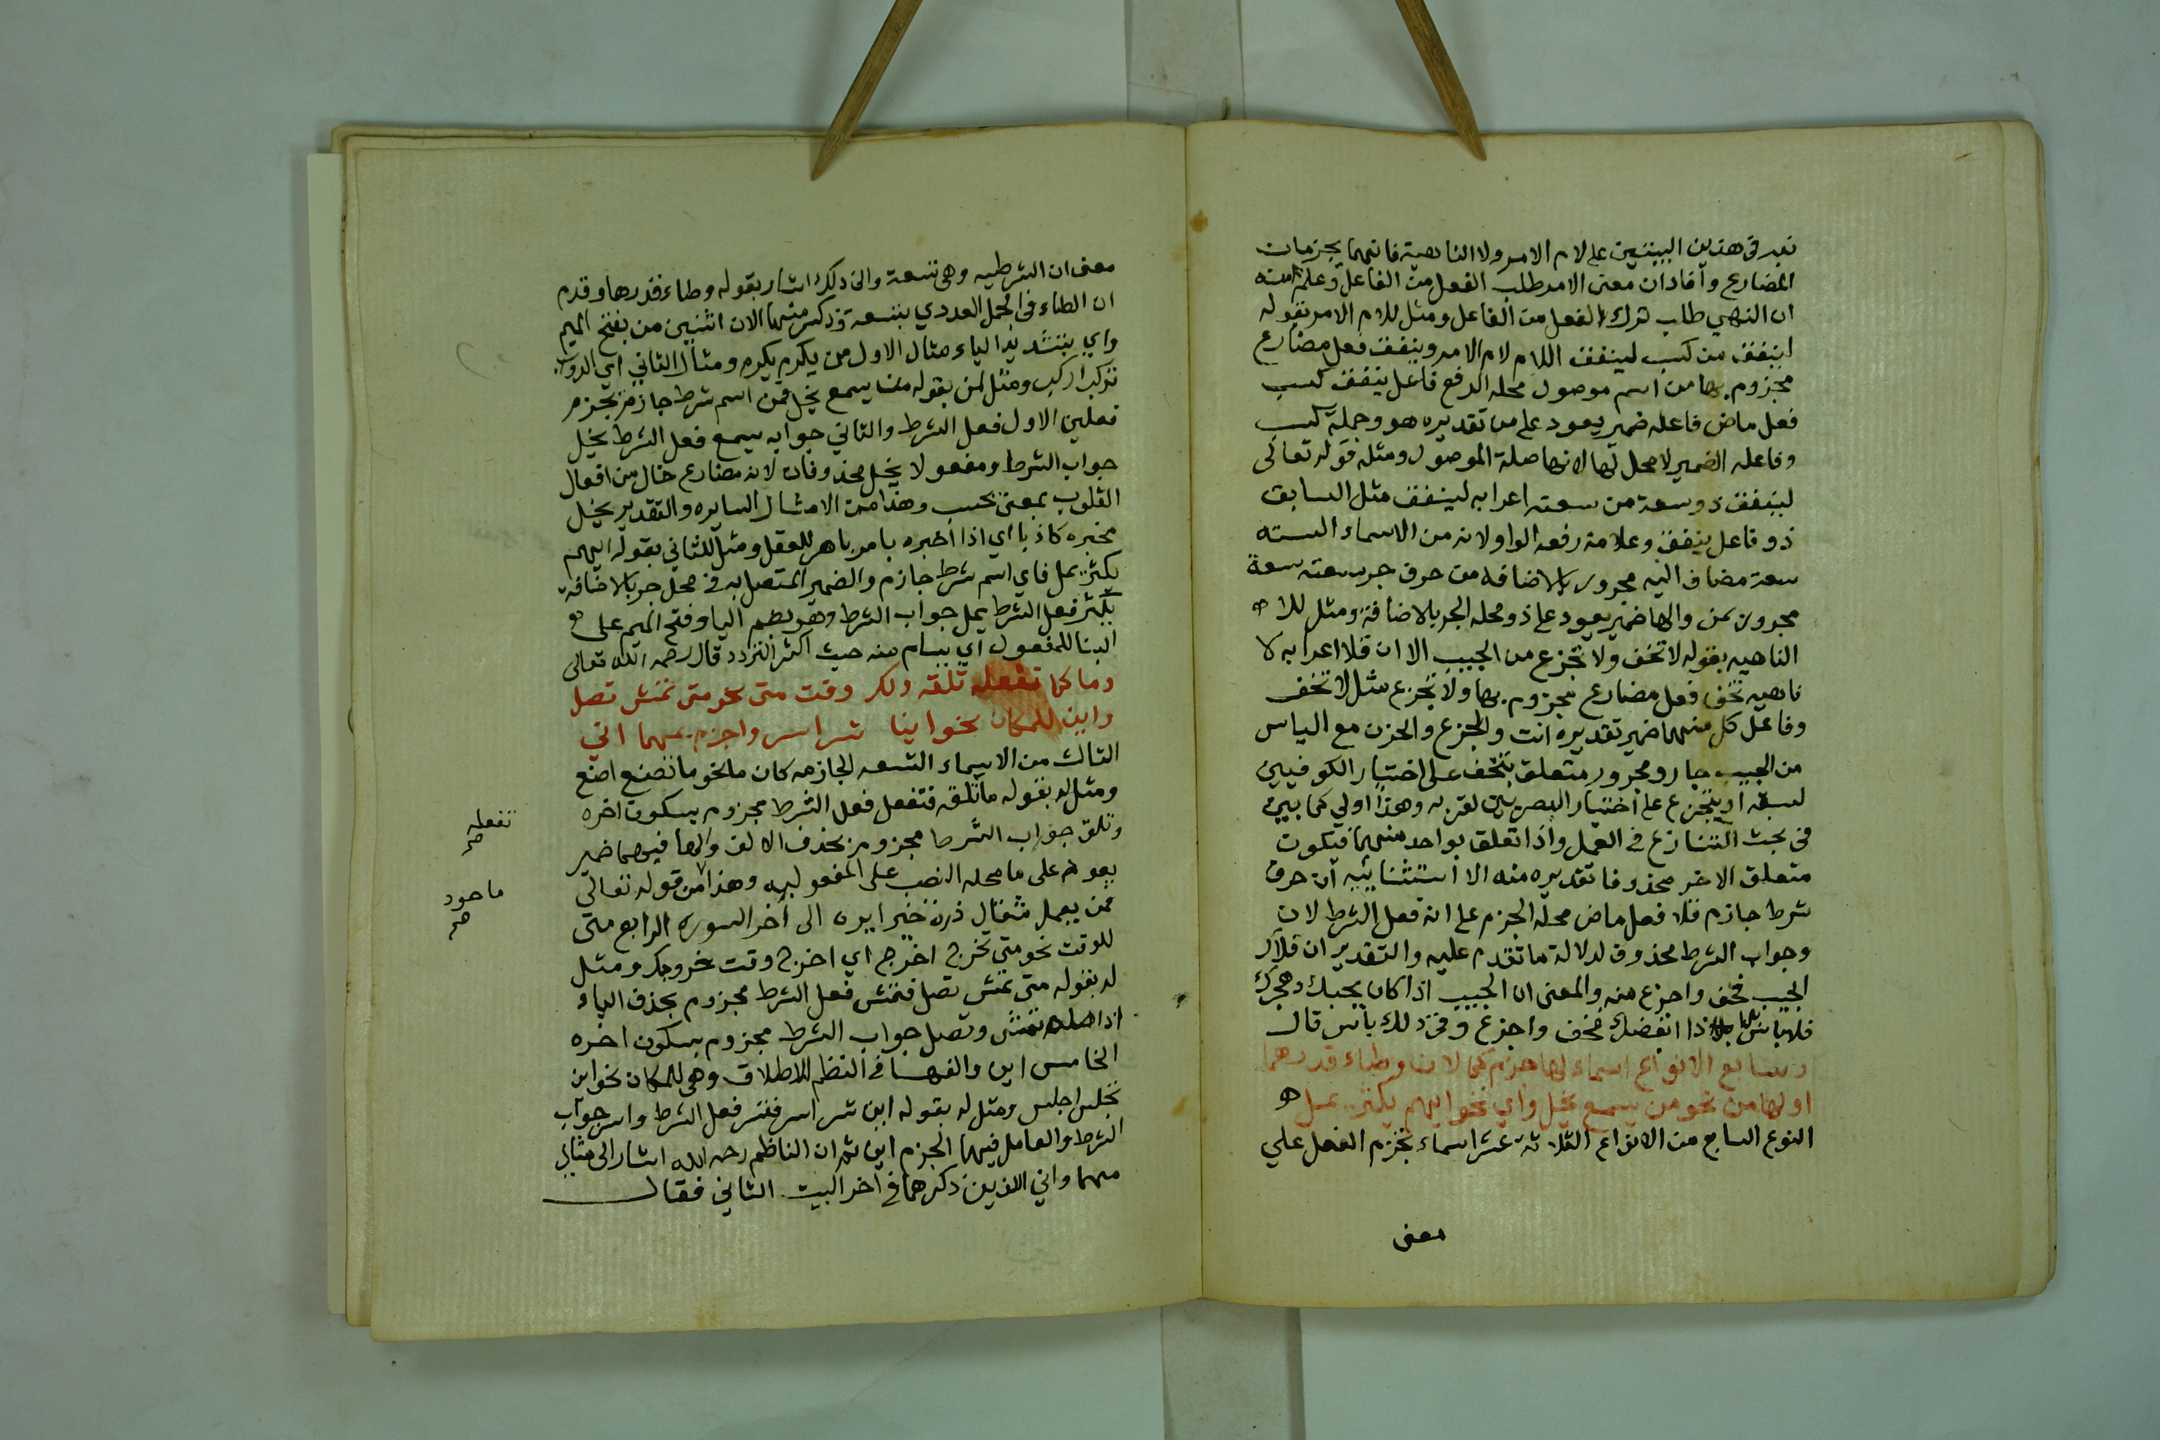 نعد في هذين البيتين على لام الامر ولا الناهية فانهما يجزمان
المضارع وأفاد ان معنى الامر طلب الفعل من الفاعل وعلم منه
ان النهي طلب ترك الفعل من الفاعل ومثل للام الامر بقوله
لينفق من كسب لينفق اللام لام الامر وينفق فعل مضارع
مجزوم بها من اسم موصول محله الرفع فاعل ينفق كسب
فعل ماض فاعله ضمير يعود على من تقديره هو وجملة كسب
وفاعله الضمير لا محل لها لانها صلة الموصول ومثله قوله تعالى
لينفق ذو سعة من سعته اعرابه لينفق مثل السابق
ذو فاعل ينفق وعلامة رفعه الواو لانه من الاسماء السته
سعة مضاف اليه مجرور بالاضافه من حرف جر سعته سعة
مجرور بمن والها ضمير يعود على ذو محله الجر بالاضافة ومثل للا
الناهيه بقوله لا تخف ولا تجزع من الحبيب الا ان قلا اعرابه لا
ناهيه تخف فعل مضارع مجزوم بها ولا تجزع مثل لا تخف
وفاعل كل منهما ضمير تقديره انت والجزع والحزن مع الياس
من الحبيب جار ومجرور متعلق بتخف على اختيار الكوفيين
لسبقه او بتجزع على اختيار البصريين لقربه وهذا اولي كما بين
في بحث التنازع في العمل واذا تعلق بواحد منهما فيكون
متعلق الاخر محذوفا تقديره منه الا استثنائيه ان حرف
شرط جازم قلا فعل ماض محله الجزم على انه فعل الشرط لان
وجواب الشرط محذوف لدلالة ما تقدم عليه والتقدير ان قلاك
الحبيب فخف واجزع منه والمعنى ان الحبيب اذا كان يحبك وهجرك
فلا باس اذا انغضك فخف واجزع وفي ذلك باس قال
وسابع الانواع اسماء لها جزم كما لان وطاء قدرها
اولها من نحو من يسمع يخل واي نحو ايهم يكثر يمل
النوع السابع من الانواع الثلاثة عشر اسماء تجزم الفعل علي
معنى
معنى ان الشرطيه وهي تسعة والى ذلك اشار بقوله وطاء قدرها وقدم
ان الطاء في الجمل العددي بتسعة وذكر منها الان اثنين من بفتح الميم
واي بتشديد الياء مثال الاول من يكرم يكرم ومثال الثاني اي الدواب
تركب اركب ومثل لمن بقوله من يسمع يخل فمن اسم شرط جازم يجزم
فعلين الاول فعل الشرط والثاني جوابه يسمع فعل الشرط يخل
جواب الشرط ومفعولا يخل محذوفان لانه مضارع خال من افعال
القلوب بمعنى يحسب وهذا من الامثال السايره والتقدير يخل
مخبره كاذبا اي اذا اخبره بامر باهر للعقل ومثل للثاني بقوله ايهم
يكثر يمل فاي اسم شرط جازم والضمير المتصل به في محل جر بالاضافة
يكثر فعل الشرط يمل جواب الشرط وهو بضم اليا وفتح الميم على
البنا للمفعول اي يسام منه حيث اكثر التردد قال رحمه الله تعالى
وما كما تفعله تلقه ولكر وقت متى نحو متى تمش تصل
واين للمكان نحو اينا تسر اسر واجزم بمهما اني
الثالث من الاسماء التسعه الجازمه كان ما نحو ما تصنع اصنع
ومثل له بقوله ما تلقه فتفعل فعل الشرط مجزوم بسكون اخره
وتلق جواب الشرط مجزوم بحذف الالف والها فيهما ضمير
يعود على ما محله النصب على المفعوليه وهذا من قوله تعالى
فمن يعمل مثقال ذرة خيرا يره الى أخر السوره الرابع متى
للوقت نحو متى تخرج اخرج اي اخرج وقت خروجك ومثل
له بقوله متى تمش تصل فتمش فعل الشرط مجزوم بحذف الياء
اذ اصله تمشي وتصل جواب الشرط مجزوم بسكون اخره
الخامس اين والفها في النظم للاطلاق وهي للمكان نحو اين
تجلس اجلس ومثل له بقوله اين تسر اسر فتسر فعل الشرط واسر جواب
الشرط والعامل فيهما الجزم اين ثم ان الناظم رحمه الله اشار الى مثالي
مهما واني اللذين ذكرهما في أخر البيت الثاني فقال
تفعله
صح
ماحود
صح